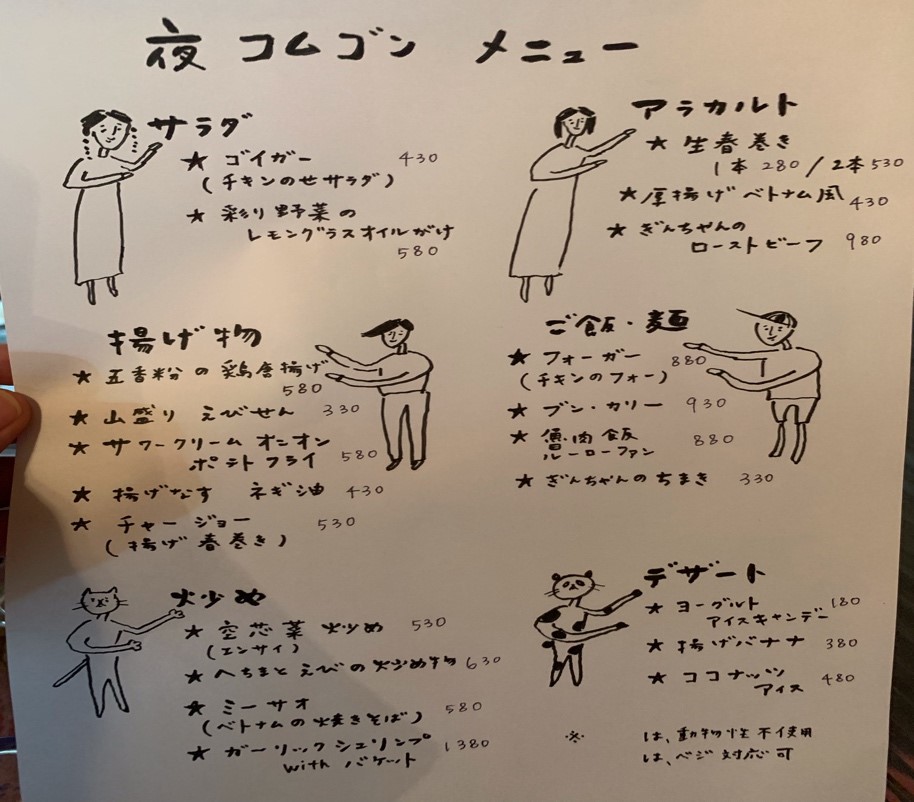 夜 コムゴン メニュー
サラダ
★ ゴイガー 430
(チキンのせサラダ)
★ 彩り野菜の
レモングラスオイルがけ
580
アラカルト
★ 生春巻き
1本 280 / 2本 530
★ 厚揚げベトナム風 430
★ ぎんちゃんの
ローストビーフ 980
揚げ物
★ 五香粉の鶏唐揚げ
580
★ 山盛り えびせん 330
★ サワークリーム オニオン
ポテトフライ 580
★ 揚げなす ネギ油 430
★ チャージョー 530
(揚げ春巻き)
ご飯・麺
★ フォーガー 880
(チキンのフォー)
★ ブン・カリー 930
★ 魯肉飯 880
ルーローファン
★ ぎんちゃんのちまき 330
炒め
★ 空芯菜炒め 530
(エンサイ)
★ へちまとえびの炒め物 630
★ ミーサオ 580
(ベトナムの焼きそば)
★ ガーリックシュリンプ 1380
with バケット
デザート
★ ヨーグルト 180
アイスキャンデー
★ 揚げバナナ 380
★ ココナッツ 480
アイス
※ は、動物性不使用
は、ベジ対応可